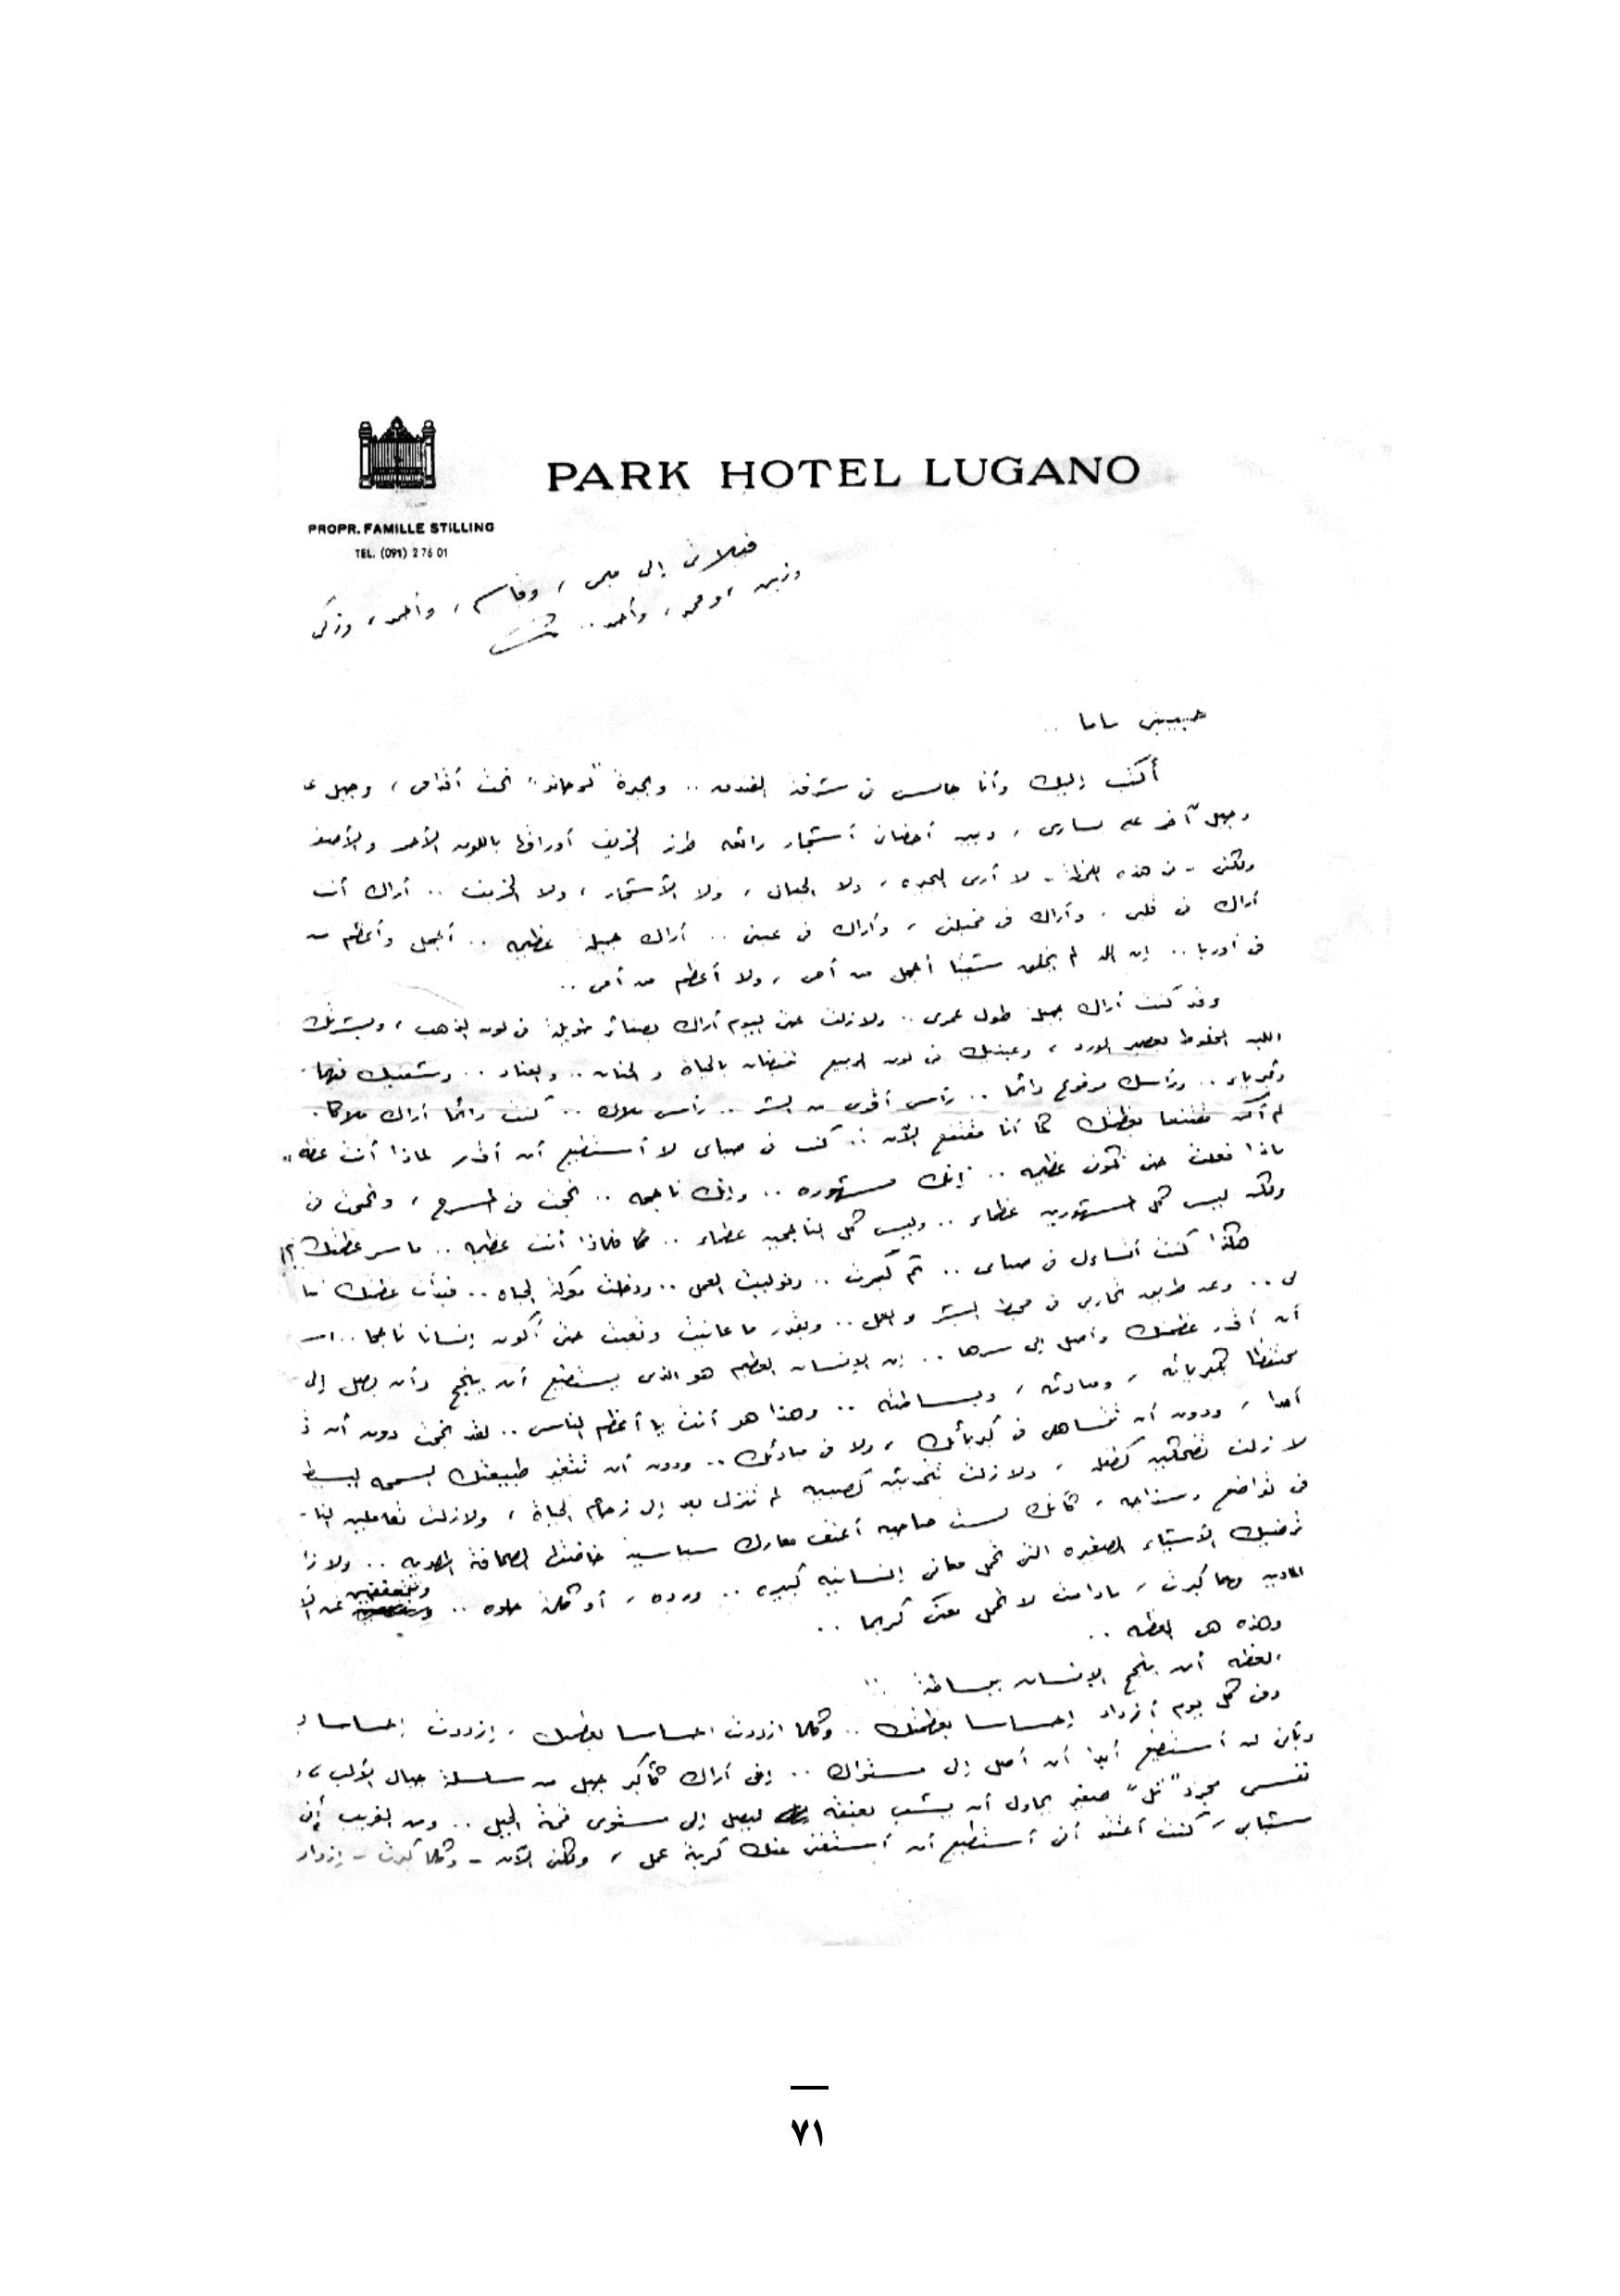 PARK HOTEL LUGANO
PROPR. FAMILLE STILLING
TEL. (091) 2 76 01
قبلاتى إلى ، وقاسم ، وأحمد ، وزكى
وزينب ، ومحمد ، وأحمد ..
حبيبتى ماما ..
أكتب إليك وأنا جالس فى شرفة الفندق .. وبحيرة "لوجانو" تحت أقدامى ، وجبل
وجبل آخر على يسارى ، وبين أحضانى أشجار رائعه طرز الخريف أوراقها باللون الأحمر والأصفر
ولكنى - فى هذه اللحظة - لا أرى البحيره ، ولا الجبال ، ولا الأشجار ، ولا الخريف .. أراك أنت
أراك فى قلبى ، وأراك فى مخيلتى ، وأراك فى عينى .. أراك جميلة عظيمه .. أجمل وأعظم
فى أوربا .. إن الله لم يخلق شيئا أجمل من أمى ، ولا أعظم من أمى ..
وقد كنت أراك جميلة طول عمرى .. ولازلت حتى اليوم أراك بضفائر طويلة فى لون الذهب ، وبشرتك
اللبن المخلوط بعصير الورد ، وعينيك فى لون الربيع تنبضان بالحياة والحنان .. والعناد .. وشفتيك فيهما
وكبرياء .. ورأسك مرفوع دائما .. رأس أقوى من البشر .. رأس ملاك .. كنت دائما أراك ملاكا .
لم أكن مقتنعا بعظمتك كما أنا مقتنع الآن .. كنت فى صباى لا أستطيع أن أقدر لماذا أنت
ماذا فعلت حتى تكونى عظيمه .. إنك مشهوره .. وإنك ناجحه .. نجحت فى المسرح ، ونجحت فى
ولكن ليس كل المشهورين عظماء .. وليس كل الناجحين عظماء .. فلماذا أنت عظيمه .. ما سر عظمتك ؟!
هكذا كنت أتساءل فى صباى .. ثم كبرت .. وتوليت العمل .. ودخلت معركة الحياه .. فبدأت عظمتك
لى .. وعن طريق تجاربى فى محيط البشر والعمل .. وبقدر ما عانيت وتعبت حتى أكون إنسانا ناجحا ..
أن أقدر عظمتك وأصل إلى سرها .. إن الإنسان العظيم هو الذى يستطيع أن ينجح وأن يصل إلى
محتفظا بكبريائه ، ومبادئه ، وبساطته .. وهذا هو أنت يا أعظم الناس .. لقد نجحت دون أن
أحدا ، ودون أن تتساهلى فى كبريائك ، ولا فى مبادئك .. ودون أن تتغير طبيعتك السمحه البسيطه
لازلت تضحكين كطفله ، ولازلت تتحدثين كصبيه لم تنزل بعد إلى زحام الحياة ، ولازلت تعاملين
فى تواضع وسذاجه ، كأنك لست صاحبة أعنف معارك سياسية خاضتها الصحافة المصريه .. ولا
ترضيك الأشياء الصغيره التى تحمل معانى إنسانيه كبيره .. ورده ، أو كلمة حلوه ..
الماديه مهما كبرت ، مادامت لا تحمل معنى كريما ..
وهذه هى العظمه ..
العظمه أن ينجح الإنسان ببساطة ..
وفى كل يوم أزداد إحساسا بعظمتك .. وكلما ازددت احساسا بعظمتك ، إزددت إحساسا
وبأنى لن أستطيع أبدا أن أصل إلى مستواك .. إنى أراك كأكبر جبل من سلسلة جبال الألب ،
نفسى مجرد "تل" صغير يحاول أن يشب بعنقه ليصل إلى مستوى قمة الجبل .. ومن الغريب إنى
شبابى ، كنت أعتقد أنى أستطيع أن أستغنى عنك كربة عمل ، ولكن الآن - وكلما كبرت - إزداد
٧١